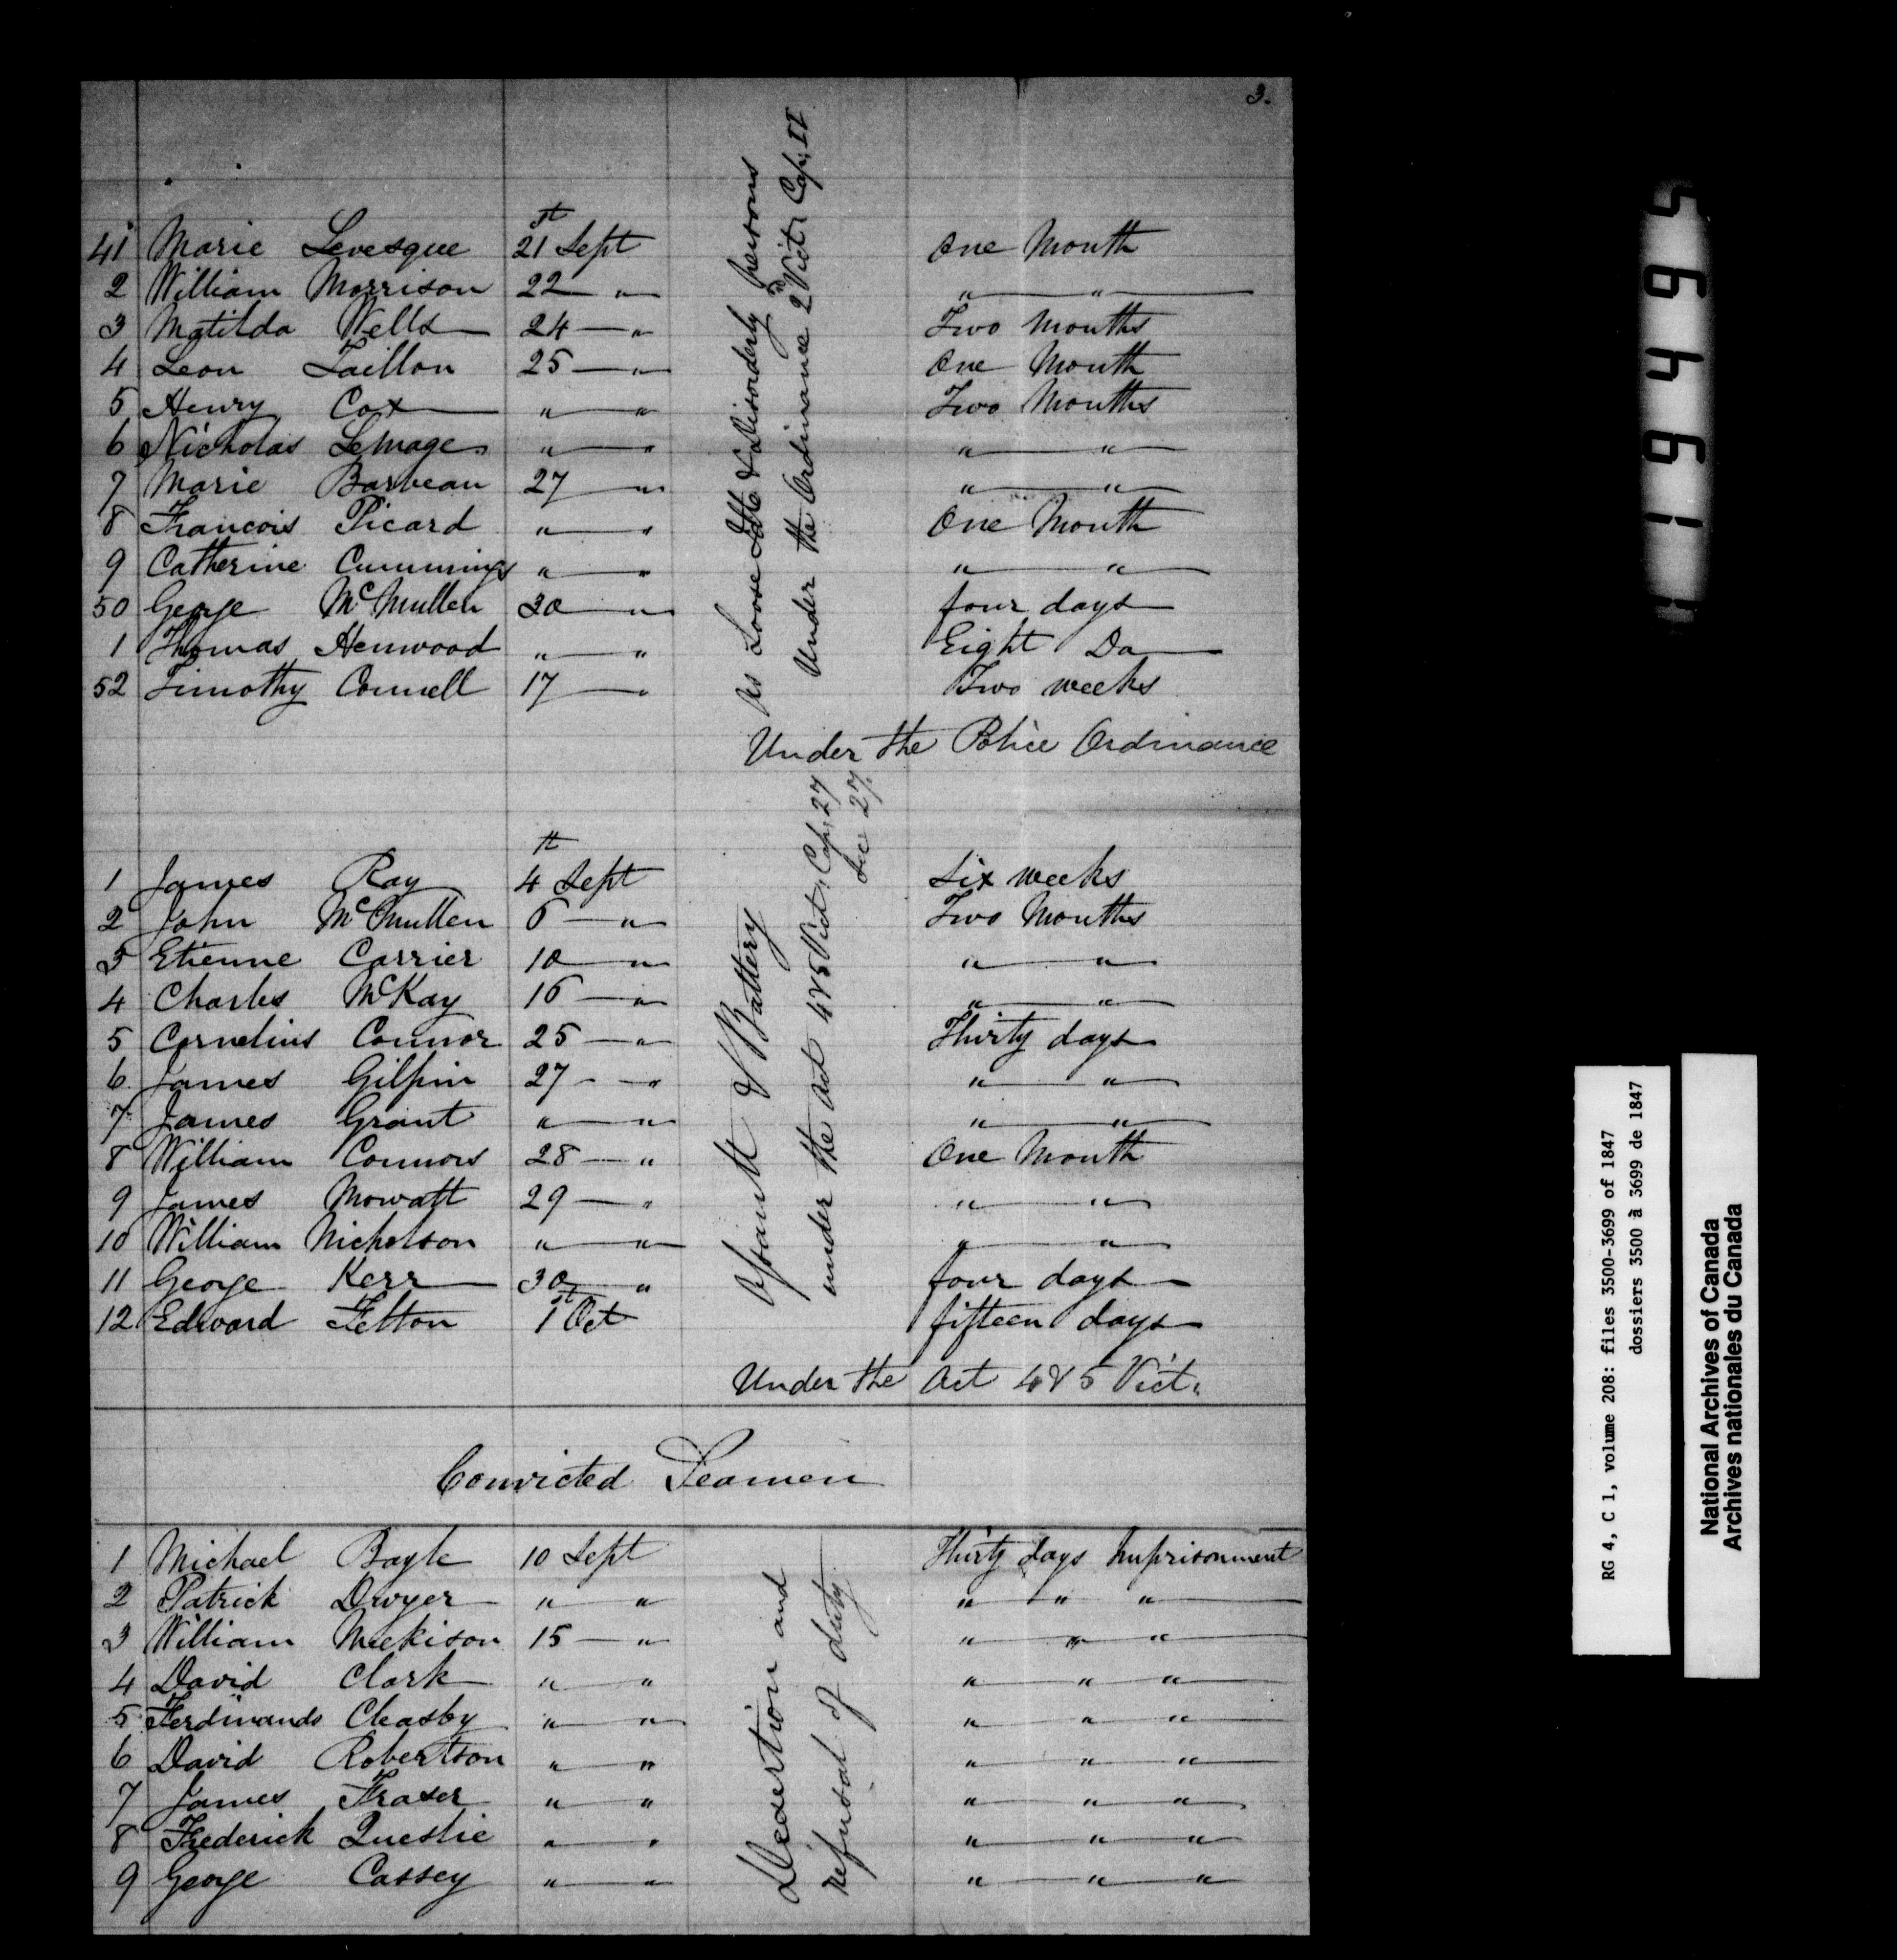 3.
41 Marie Levesque 21st Sept One Month
2 William Morrison 22 — " " — "
3 Matilda Wells 24 — " Two Months
4 Leon Taillon 25 — " One Month
5 Henry Cox " — " Two Months
6 Nicholas Lemage " — " " — "
7 Marie Barbeau 27 — " " — "
8 Francois Picard " — " One Month
9 Catherine Cummings " — " " — "
50 George McMullen 30 — " four days
1 Thomas Henwood " — " Eight Do
52 Timothy Connell 17 — " Two weeks
As Loose Idle & Disorderly persons
Under the Ordinance 2nd Vict: Cap: II
Under the Police Ordinance
1 James Ray 4th Sept Six weeks
2 John McMullen 6 — " Two Months
3 Etienne Carrier 10 — " " — "
4 Charles McKay 16 — " " — "
5 Cornelius Connor 25 — " Thirty days
6 James Gilpin 27 — " " — "
7 James Grant " — " " — "
8 William Connors 28 — " One Month
9 James Mowatt 29 — " " — "
10 William Nicholson " — " " — "
11 George Kerr 30 — " four days
12 Edward Felton 1st Oct fifteen days
Assault & Battery
under the Act 4 & 5 Vict: Cap: 27
Sec 27.
Under the Act 4 & 5 Vict:
Convicted Seamen
1 Michael Boyle 10 Sept Thirty days Imprisonment
2 Patrick Dwyer " — " " " "
3 William Meekison 15 — " " " "
4 David Clark " — " " " "
5 Ferdinands Cleasby " — " " " "
6 David Robertson " — " " " "
7 James Fraser " — " " " "
8 Frederick Queslie " — " " " "
9 George Cassey " — " " " "
Desertion and
Refusal of duty
56491
RG 4, C 1, volume 208: files 3500-3699 of 1847
dossiers 3500 à 3699 de 1847
National Archives of Canada
Archives nationales du Canada